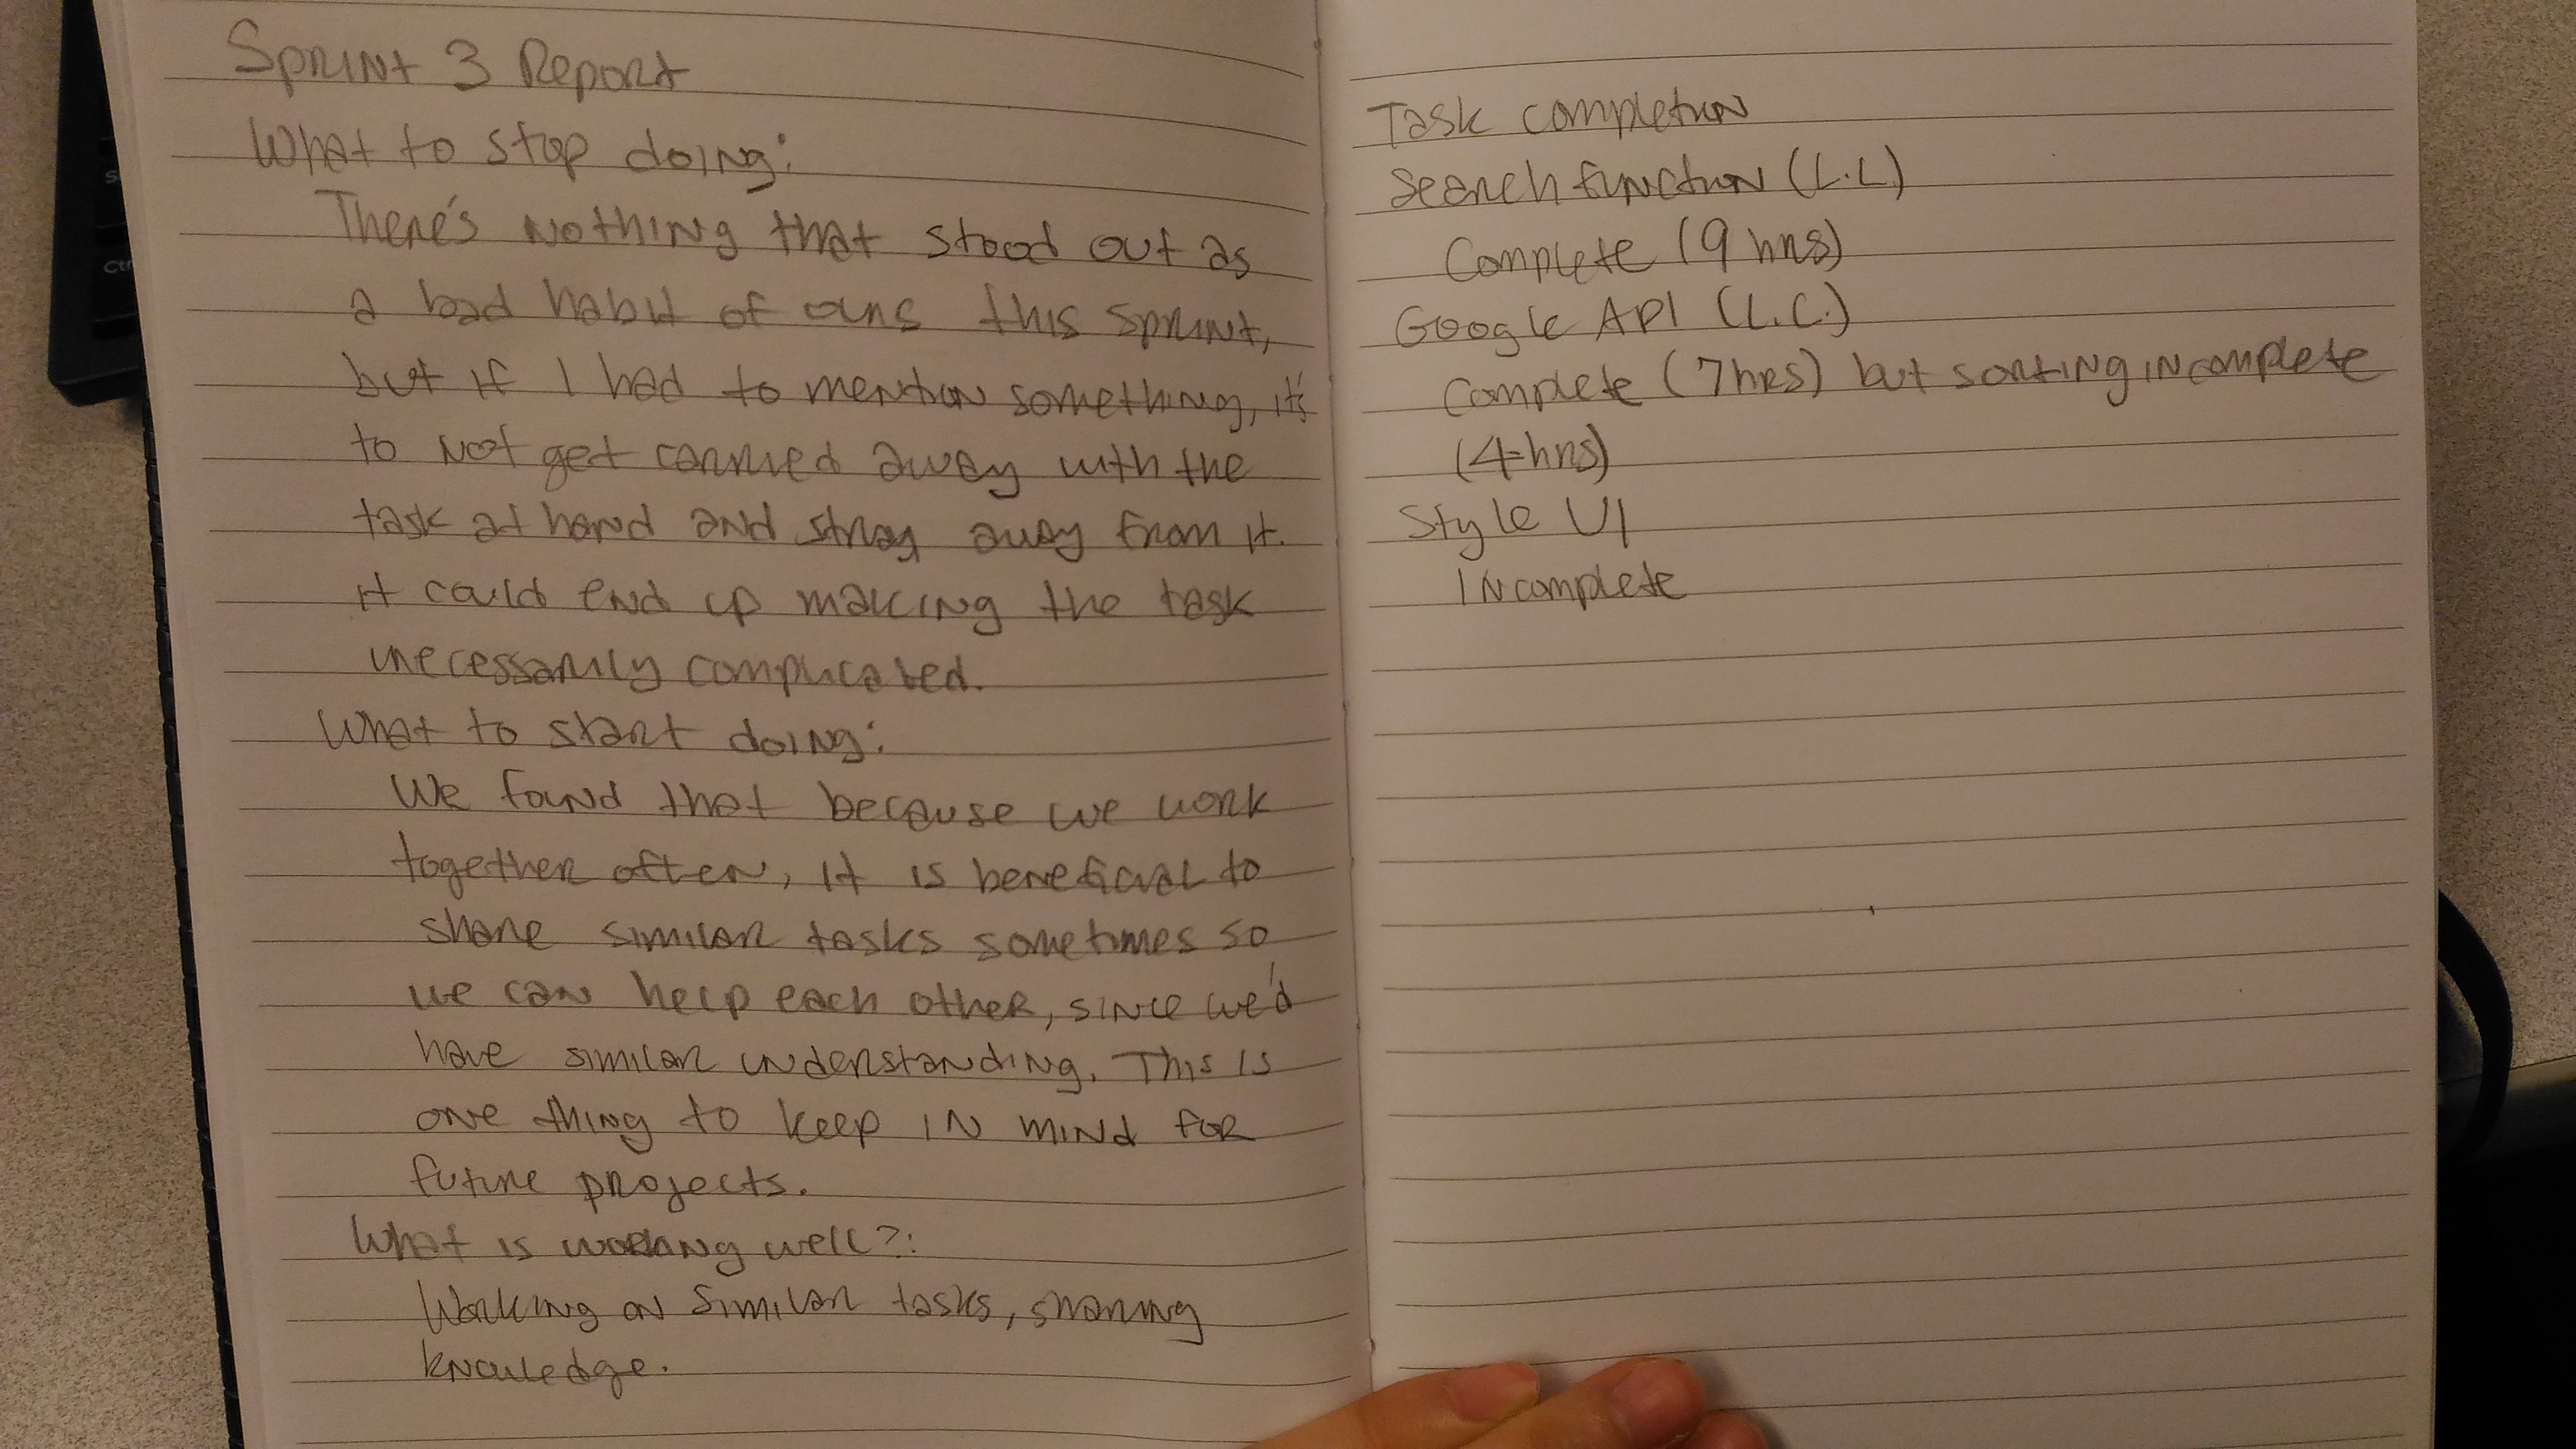 Sprint 3 Report
What to stop doing:
There's nothing that stood out as
a bad habit of ours this sprint,
but if I had to mention something, it's
to not get carried away with the
task at hand and stray away from it.
it could end up making the task
unecessarily complicated.
What to start doing:
We found that because we work
together often, it is beneficial to
share similar tasks sometimes so
we can help each other, since we'd
have similar understanding. This is
one thing to keep in mind for
future projects.
What is working well?:
Working on similar tasks, sharing
knowledge.
Task completion
Search function (L.L)
Complete (9 hrs)
Google API (L.C.)
Complete (7hrs) but sorting incomplete
(4 hrs)
Style UI
Incomplete